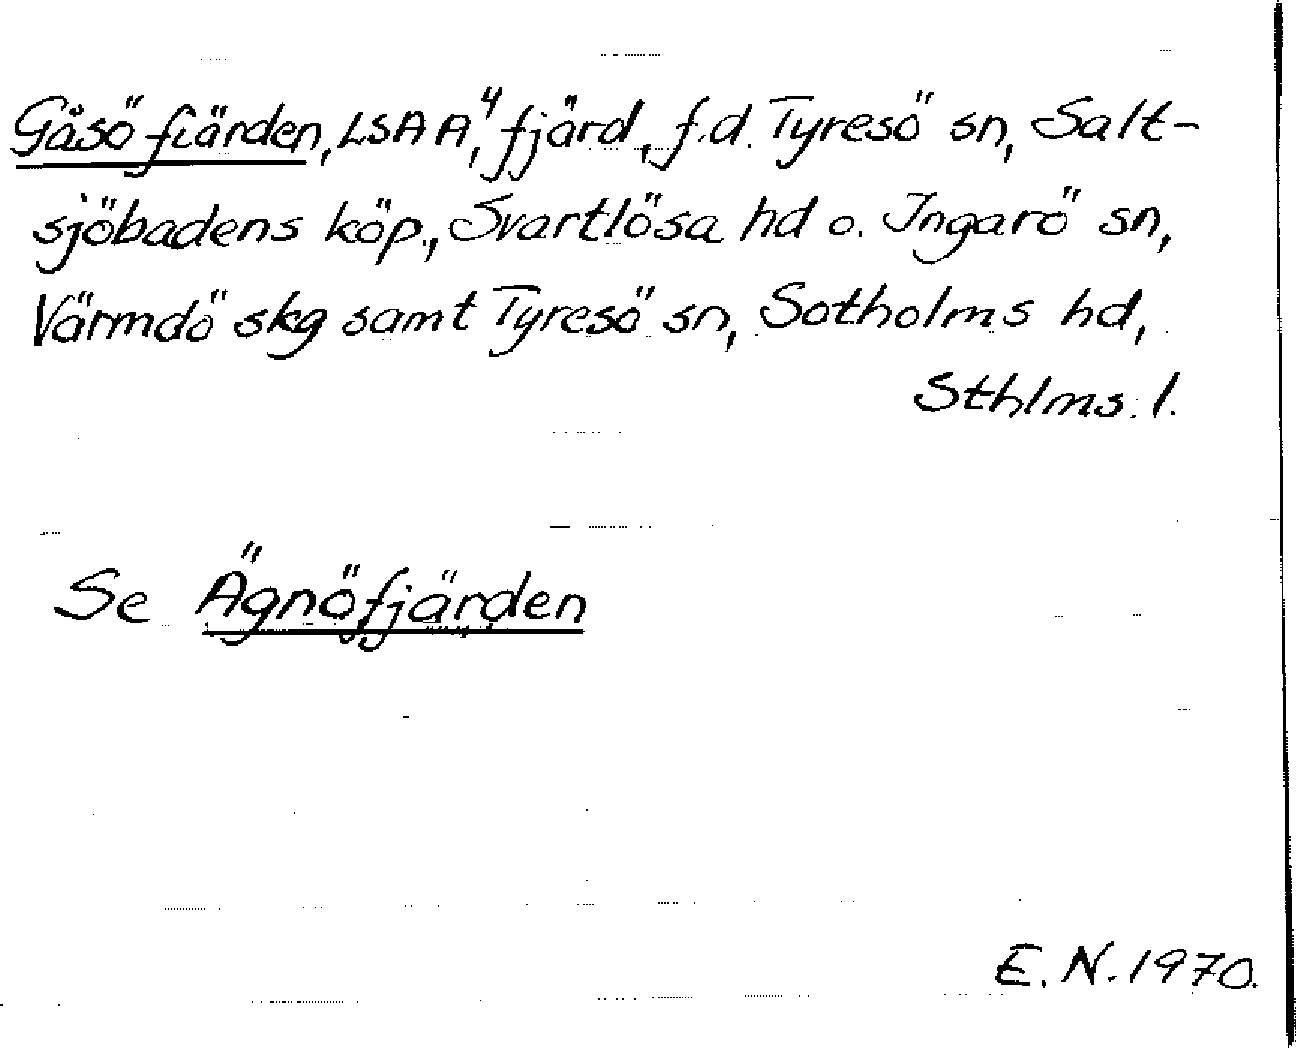 Gåsö fiärden, LSA A⁴, fjärd, f.d. Tyresö sn, Salt-
sjöbadens köp., Svartlösa hd o. Ingarö sn,
Värmdö skg samt Tyresö sn, Sotholms hd,
Sthlms. l.
Se Ägnöfjärden
E. N. 1970.